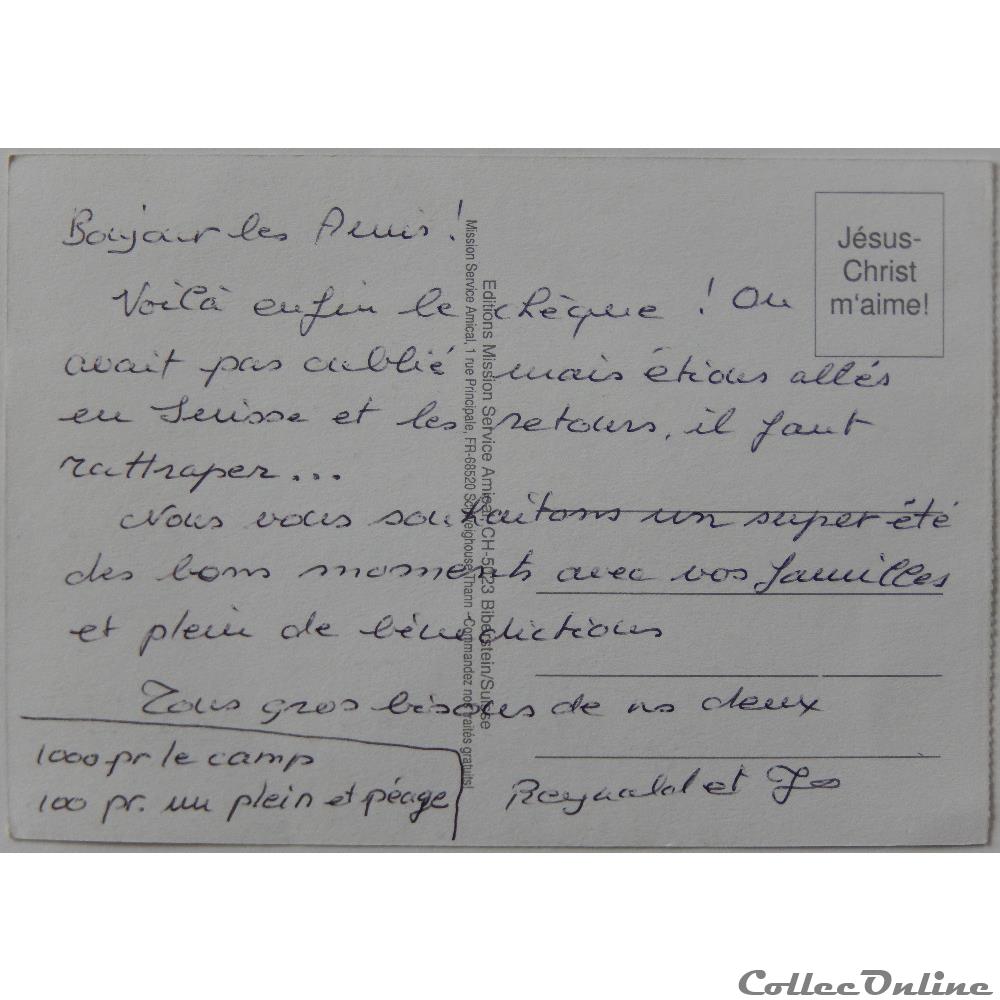 Bonjour les Amis !
Voilà enfin le chèque ! On
avait pas oublié mais étions allés
en Suisse et les retours, il faut
rattraper...
Nous vous souhaitons un super été
des bons moments avec vos familles
et plein de bénédictions
Tous gros bisous de ns deux
Reynald et Jos
1000 pr le camp
100 pr. un plein et péage
Jésus-
Christ
m'aime!
Editions Mission Service Amical, CH-5023 Biberstein/Suisse
Mission Service Amical, 1 rue Principale, FR-68520 Schweighouse/Thann - Commandez nos traités gratuits!
CollecOnline